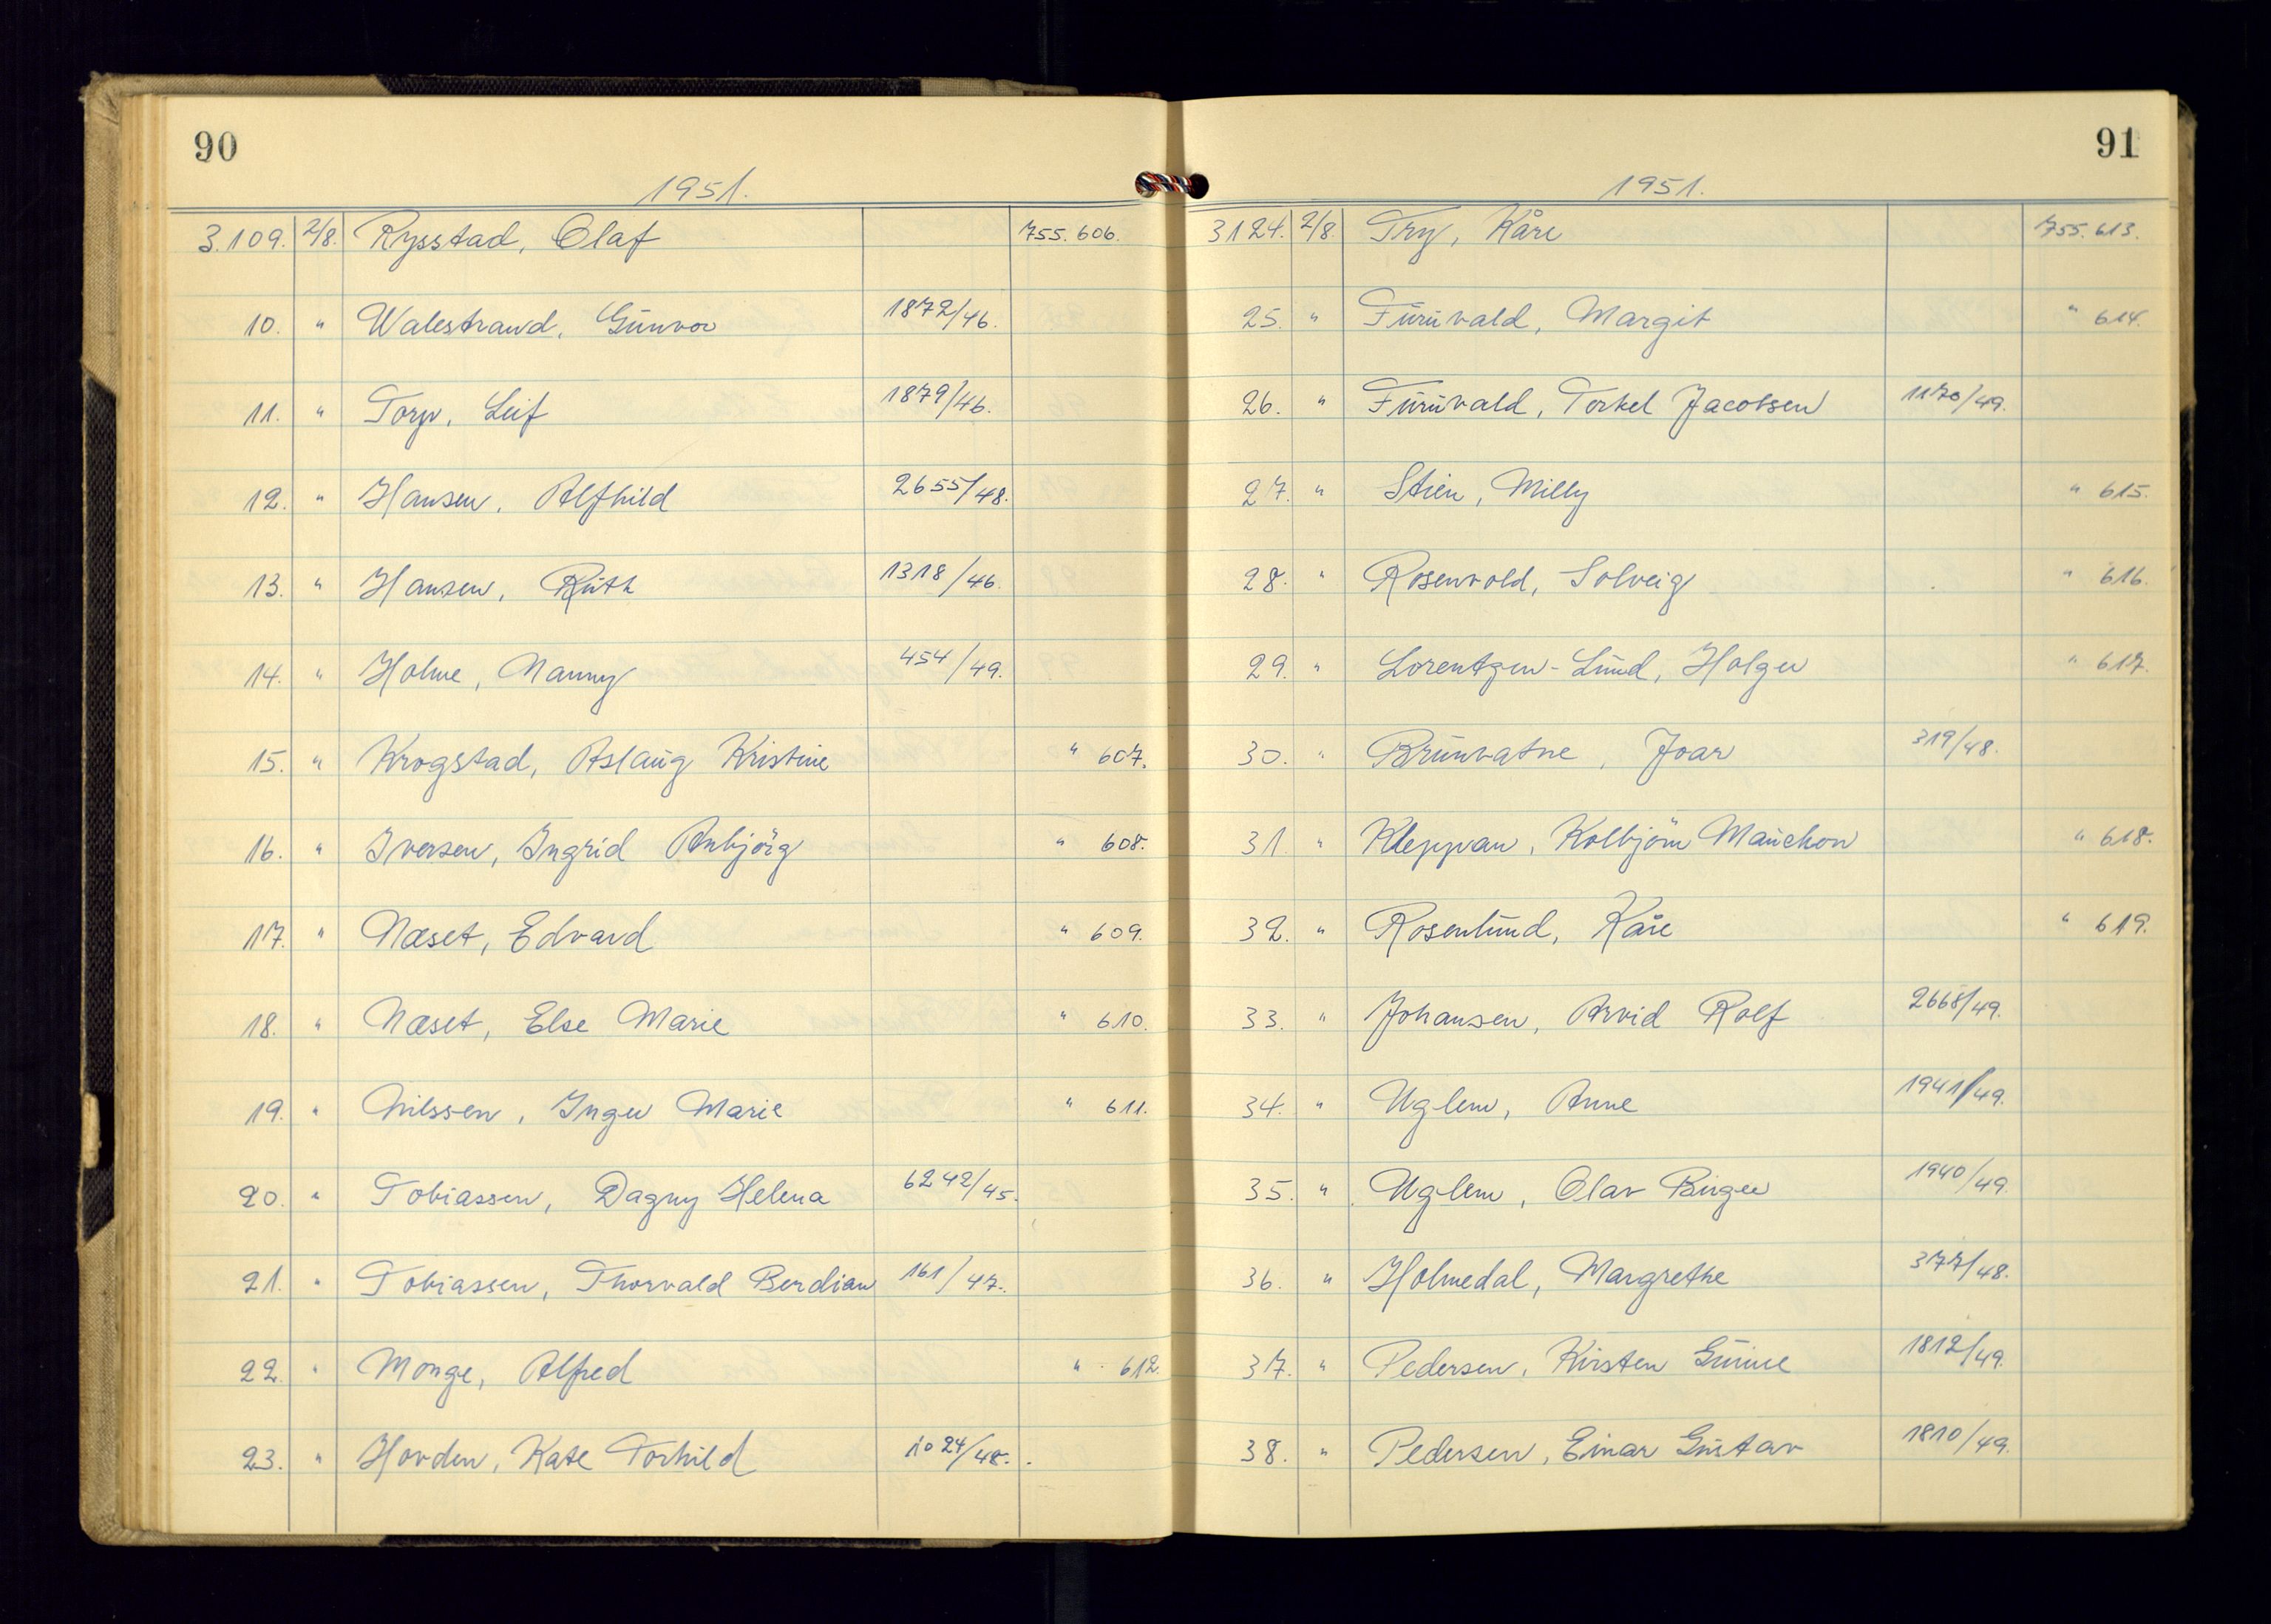 90
1951.
3.109. 2/8. Rysstad, Olaf 755.606.
10. " Walestrand, Gunvor 1872/46.
11. " Torp, Leif 1879/46.
12. " Hansen, Alfhild 2655/48.
13. " Hansen, Ruth 1318/46.
14. " Holme, Nanny 454/49.
15. " Krogstad, Aslaug Kristine " 607.
16. " Iversen, Ingrid Anbjörg " 608.
17. " Næset, Edvard " 609.
18. " Næset, Else Marie " 610.
19. " Nilssen, Inger Marie " 611.
20. " Tobiassen, Dagny Helena 6242/45.
21. " Tobiassen, Thorvald Berdian 161/47.
22. " Monge, Alfred " 612.
23. " Hovden, Kate Torhild 1024/48.
91
1951.
3124. 2/8. Try, Kåre 755.613.
25. " Furuvald, Margit " 614.
26. " Furuvald, Torkel Jacobsen 1170/49.
27. " Stien, Milly " 615.
28. " Rosenvold, Solveig " 616.
29. " Lorentzen-Lund, Holger " 617.
30. " Brunvatne, Joar 319/48.
31. " Kleppvan, Kolbjörn " 618.
32. " Rosenlund, Kåre " 619.
33. " Johansen, Arvid Rolf 2668/49.
34. " Uglem, Anne 1941/49.
35. " Uglem, Olav Birger 1940/49.
36. " Holmedal, Margrethe 377/48.
37. " Pedersen, Kirsten 1812/49.
38. " Pedersen, Einar Gustav 1810/49.